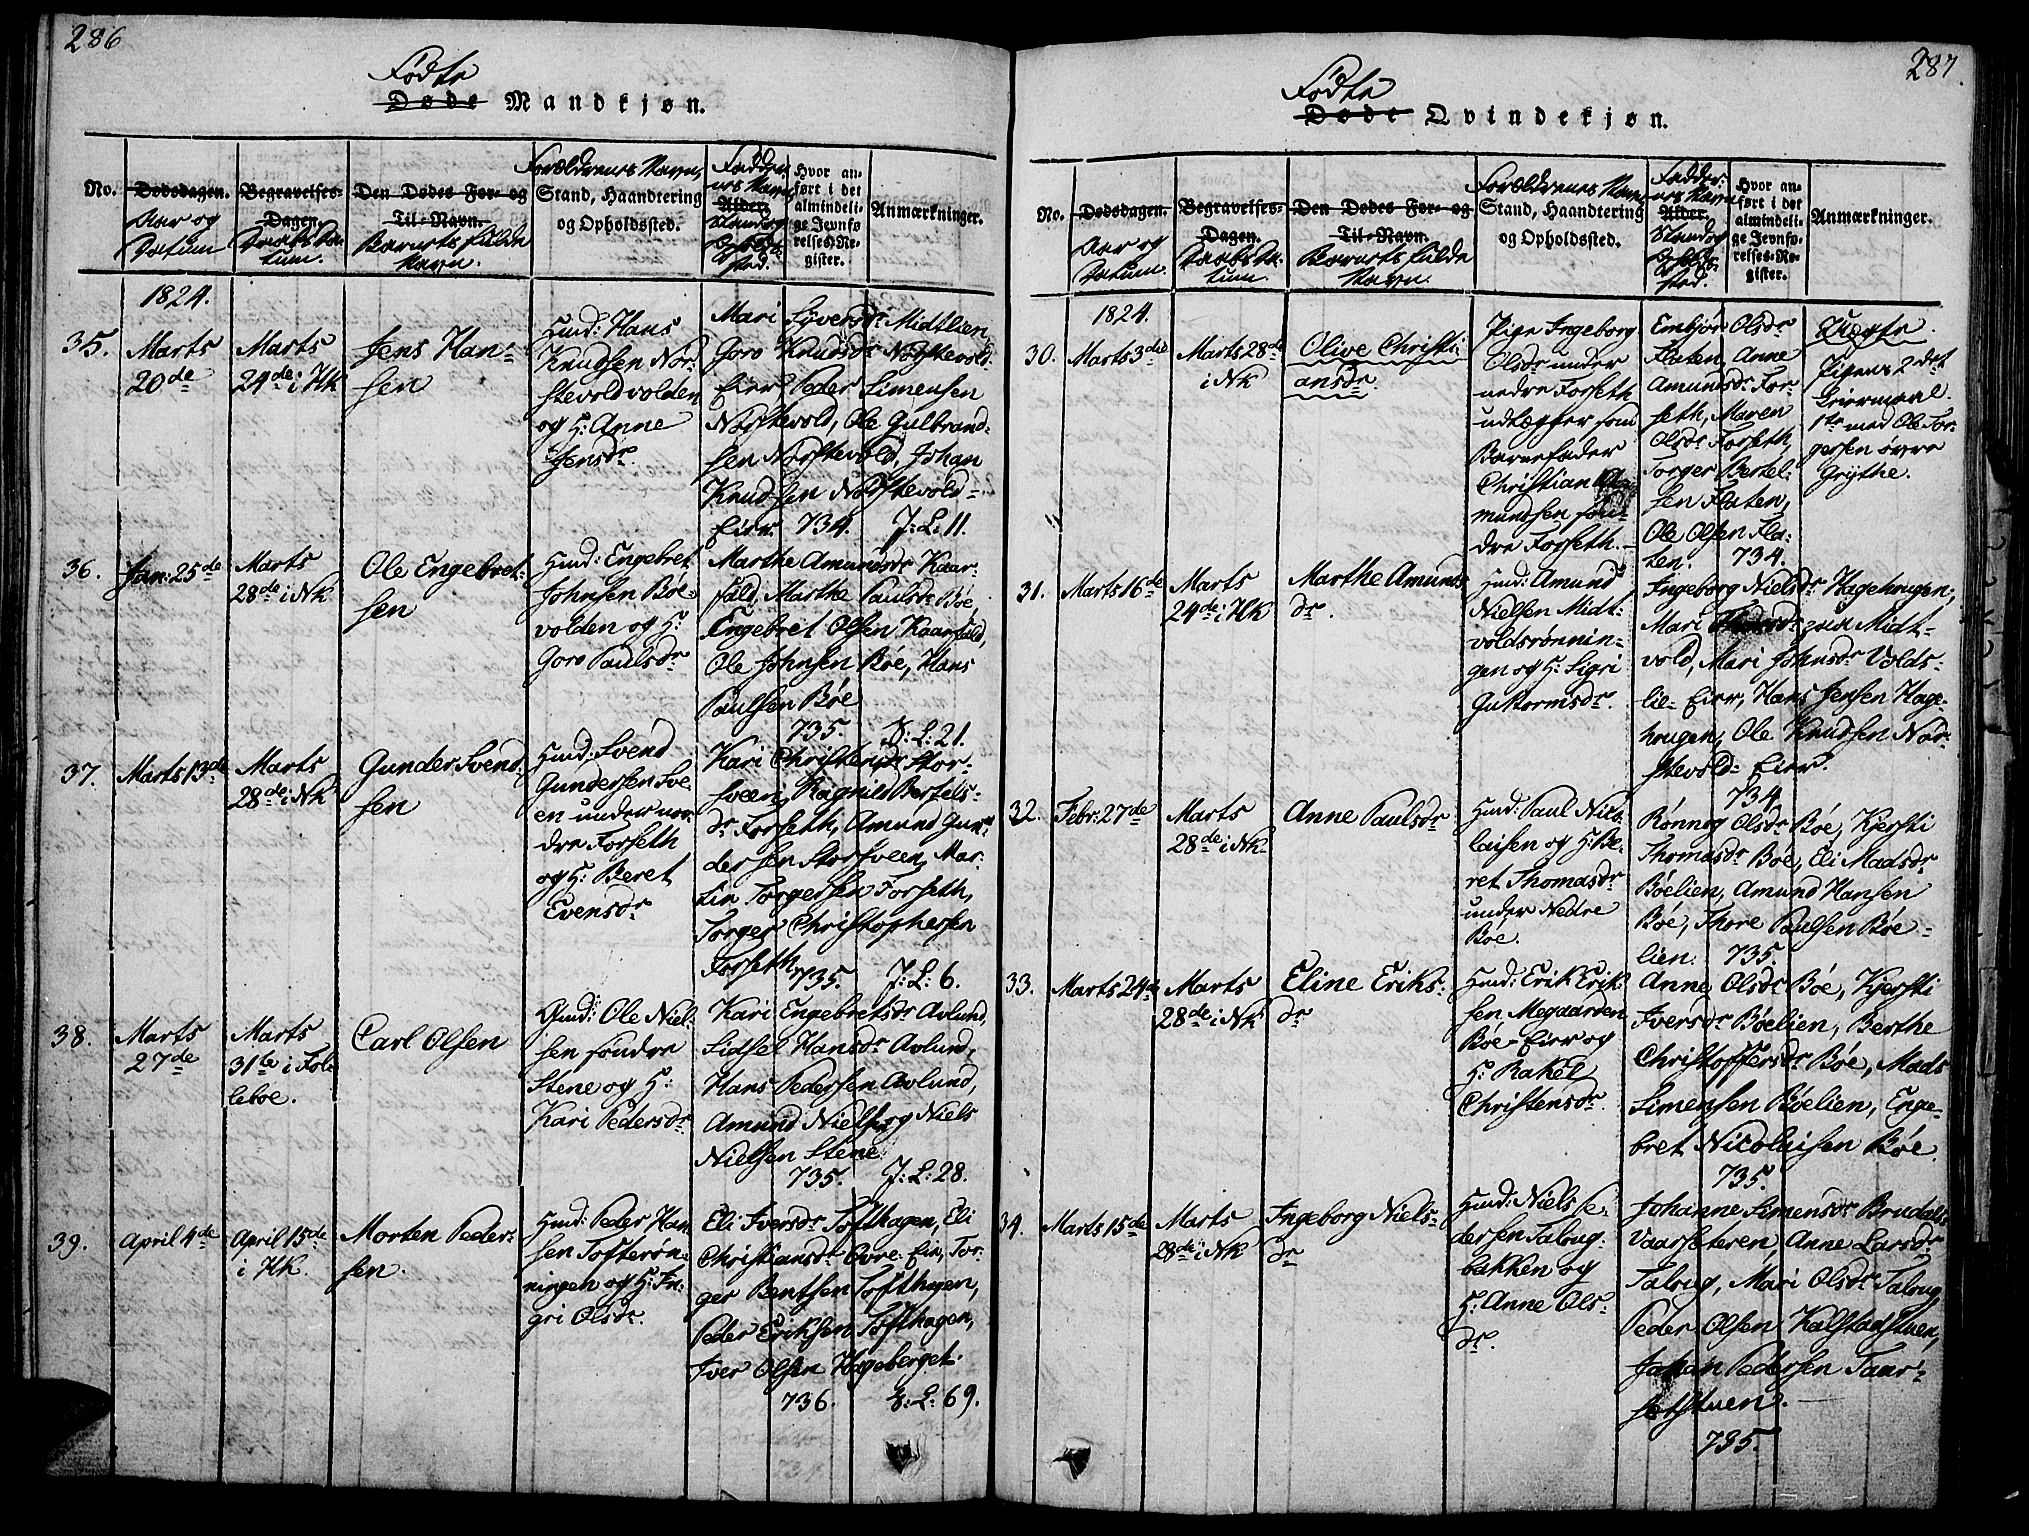 286
Fødte
Døde Mandkjøn.
No.
Dødsdagen.
Aar og
Datum
Begravelses-
Dagen.
Daabs Da-
tum.
Den Dødes For- og
Til-Navn.
Barnets fulde
Navn.
Forældrenes Navn,
Stand, Haandtering
og Opholdssted.
Fadder-
nes Navn
Alder.
Stand og
Opholds-
sted.
Hvor an-
ført i det
almindeli-
ge Jevnfø-
relses-Re-
gister.
Anmærkninger.
1824.
35.
Marts
20de
Marts
24de i Hk
Jens Han-
sen
Hmd: Hans
Knudsen Nor-
stevoldvolden
og H: Anne
Jensdr.
Mari Syversdr Midtlien,
Goro Knudsdr Norstevold-
Eier Peder Simensen
Norstevold, Ole Gulbrand-
sen Norstevold, Johan
Knudsen Norstevold-
Eier. 734. J: L: 11.
36.
Jan: 25de
Marts
28de i Nk
Ole Engebret-
sen
Hmd: Engebret
Johnsen Bøe-
volden og H:
Goro Paulsdr
Marthe Amundsdr Kaar-
fald, Marthe Paulsdr Bøe,
Engebret Olsen Kaarfald,
Ole Johnsen Bøe, Hans
Paulsen Bøe
735. J: L: 21.
37.
Marts 13de
Marts
28de i Nk
Gunder Svend-
sen
Hmd: Svend
Gundersen Sve-
en under ne-
dre Forseth
og H: Beret
Evensdr
Kari Christensdr Stor-
sveen, Ragnild Bertels-
dr Forseth, Amund Gun-
dersen Storsveen, Mar-
tin Torgersen Forseth,
Torger Christophersen
Forseth 735. J: L: 6.
38.
Marts
27de
Marts
31te i Fol-
leboe.
Carl Olsen
Gmd: Ole Niel-
sen søndre
Stene og H:
Kari Pedersdr
Kari Engebretsdr Avlund,
Sidsel Hansdr Avlund,
Hans Pedersen Avlund,
Amund Nielsen og Niels
Nielsen Stene
735. J: L: 28.
39.
April 4de
April 15de
i Hk.
Morten Peder-
sen.
Hmd: Peder Han-
sen Tofterøn-
ningen og H: In-
gri Olsdr.
Eli Iversdr Tofthagen, Eli
Christiansdr Øvre-Eie, Tor-
ger Bentsen Tofthagen,
Peder Eriksen Tofthagen,
Iver Olsen Hageberget.
736. J: L: 69.
287.
Fødte
Døde Qvindekjøn.
No.
Dødsdagen.
Aar og
Datum.
Begravelses-
Dagen.
Daabs Da-
tum.
Den Dødes For- og
Til-Navn.
Barnets fulde
Navn.
Forældrenes Navn
Stand, Haandtering
og Opholdssted.
Fadder-
nes Navn
Alder.
Stand og
Opholds-
sted.
Hvor an-
ført i det
almindeli-
ge Jevnfø-
relses-Re-
gister.
Anmærkninger.
1824.
30.
Marts 3die
Marts 28de
i Nk
Olive Christi-
ansdr.
Pige Ingeborg
Olsdr under
nedre Forseth
udlægger som
Barnefader
Christian A-
mundsen søn-
dre Forseth.
Embjør Olsdr
Flaten, Anne
Amundsdr For-
seth, Maren
Olsdr Forseth,
Torger Bertel-
sen Flaten,
Ole Olsen Fla-
ten. 734.
Uægte.
Pigens 2det
Leiermaal.
1te med Ole Tor-
gersen øvre
Grythe.
31.
Marts 16de
Marts
24de i Hk
Marthe Amunds-
dr.
Hmd: Amund
Nielsen Midt-
voldsrønnin-
gen og H: Sigri
Guttormsdr.
Ingeborg Nielsdr Hagehougen,
Mari Midt-
vold, Mari Johnsdr Volds-
lie-Eier, Hans Jensen Hage-
hougen, Ole Knudsen Nor-
stevold-Eier.
734
32.
Febr: 27de
Marts
28de i Nk
Anne Paulsdr
Hmd: Paul Nico-
laisen og H: Be-
ret Thomasdr
under Nedre
Bøe.
Rønnog Olsdr Bøe, Kjersti
Thomasdr Bøe, Eli Madsdr
Bøelien, Amund Hansen
Bøe, Thore Paulsen Bøe-
lien. 735.
33.
Marts 24de
Marts
28de i Nk
Eline Eriks-
dr
Hmd: Erik Erik-
sen Megaarden
Bøe-Eier og
H: Rakel
Christensdr.
Anne Olsdr Bøe, Kjersti
Iversdr Bøelien, Berthe
Christoffersdr Bøe, Mads
Simensen Bøelien, Enge-
bret Nicolaisen Bøe.
735.
34.
Marts 15de
Marts
28de i Nk
Ingeborg Niels-
dr
Hmd: Niels Pe-
dersen Talaug-
bakken og
H: Anne Ols-
dr.
Johanne Simensdr Brudals-
Vaarseteren, Anne Larsdr
Talaug, Mari Olsdr Talaug,
Peder Olsen Kalstadstuen,
Johan Pedersen Taar-
setstuen.
735.